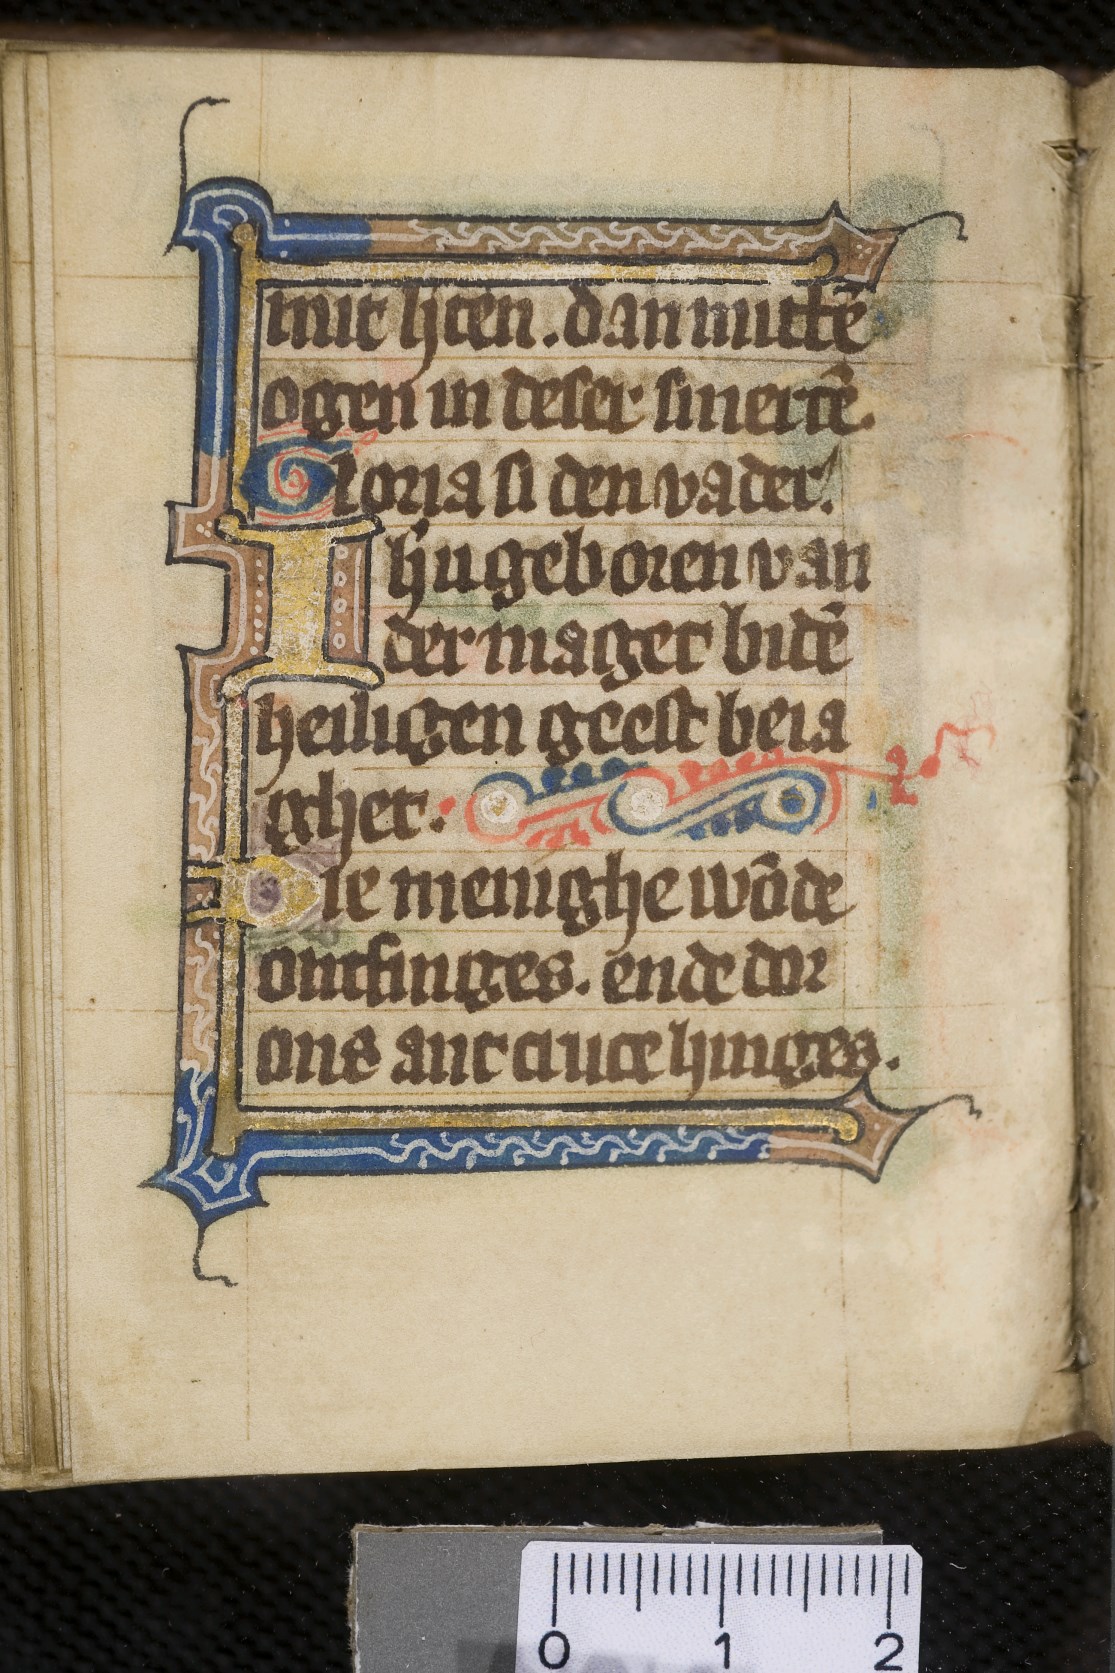 mit hten. dan mittē
ogen in deser smertē.
Gloria si den vader.
Ihu geboren van
der maget bidē
heiligen geest beia
ghet.
Die menighe wōde
ontfinges. ende dor
ons ant cruce hinges.
0 1 2